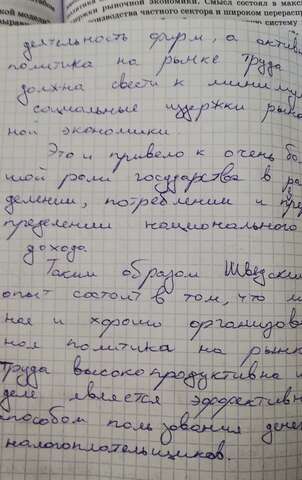 рыночной экономики. Смысл состоял в мак
производства частного сектора и широком перерасп
кой модели
деятельность фирм, а актив
политика на рынке труда
должна свести к миниму
социальные издержки рыно
ной экономики.
Это и привело к очень бо
шой роли государства в ра
делении, потреблении и пер
пределении национального
дохода.
Таким образом Шведски
опыт состоит в том, что
ная и хорошо организова
ная политика на рынк
труда высокопродуктивна и
деле является эффективн
способом пользования дене
налогоплательщиков.